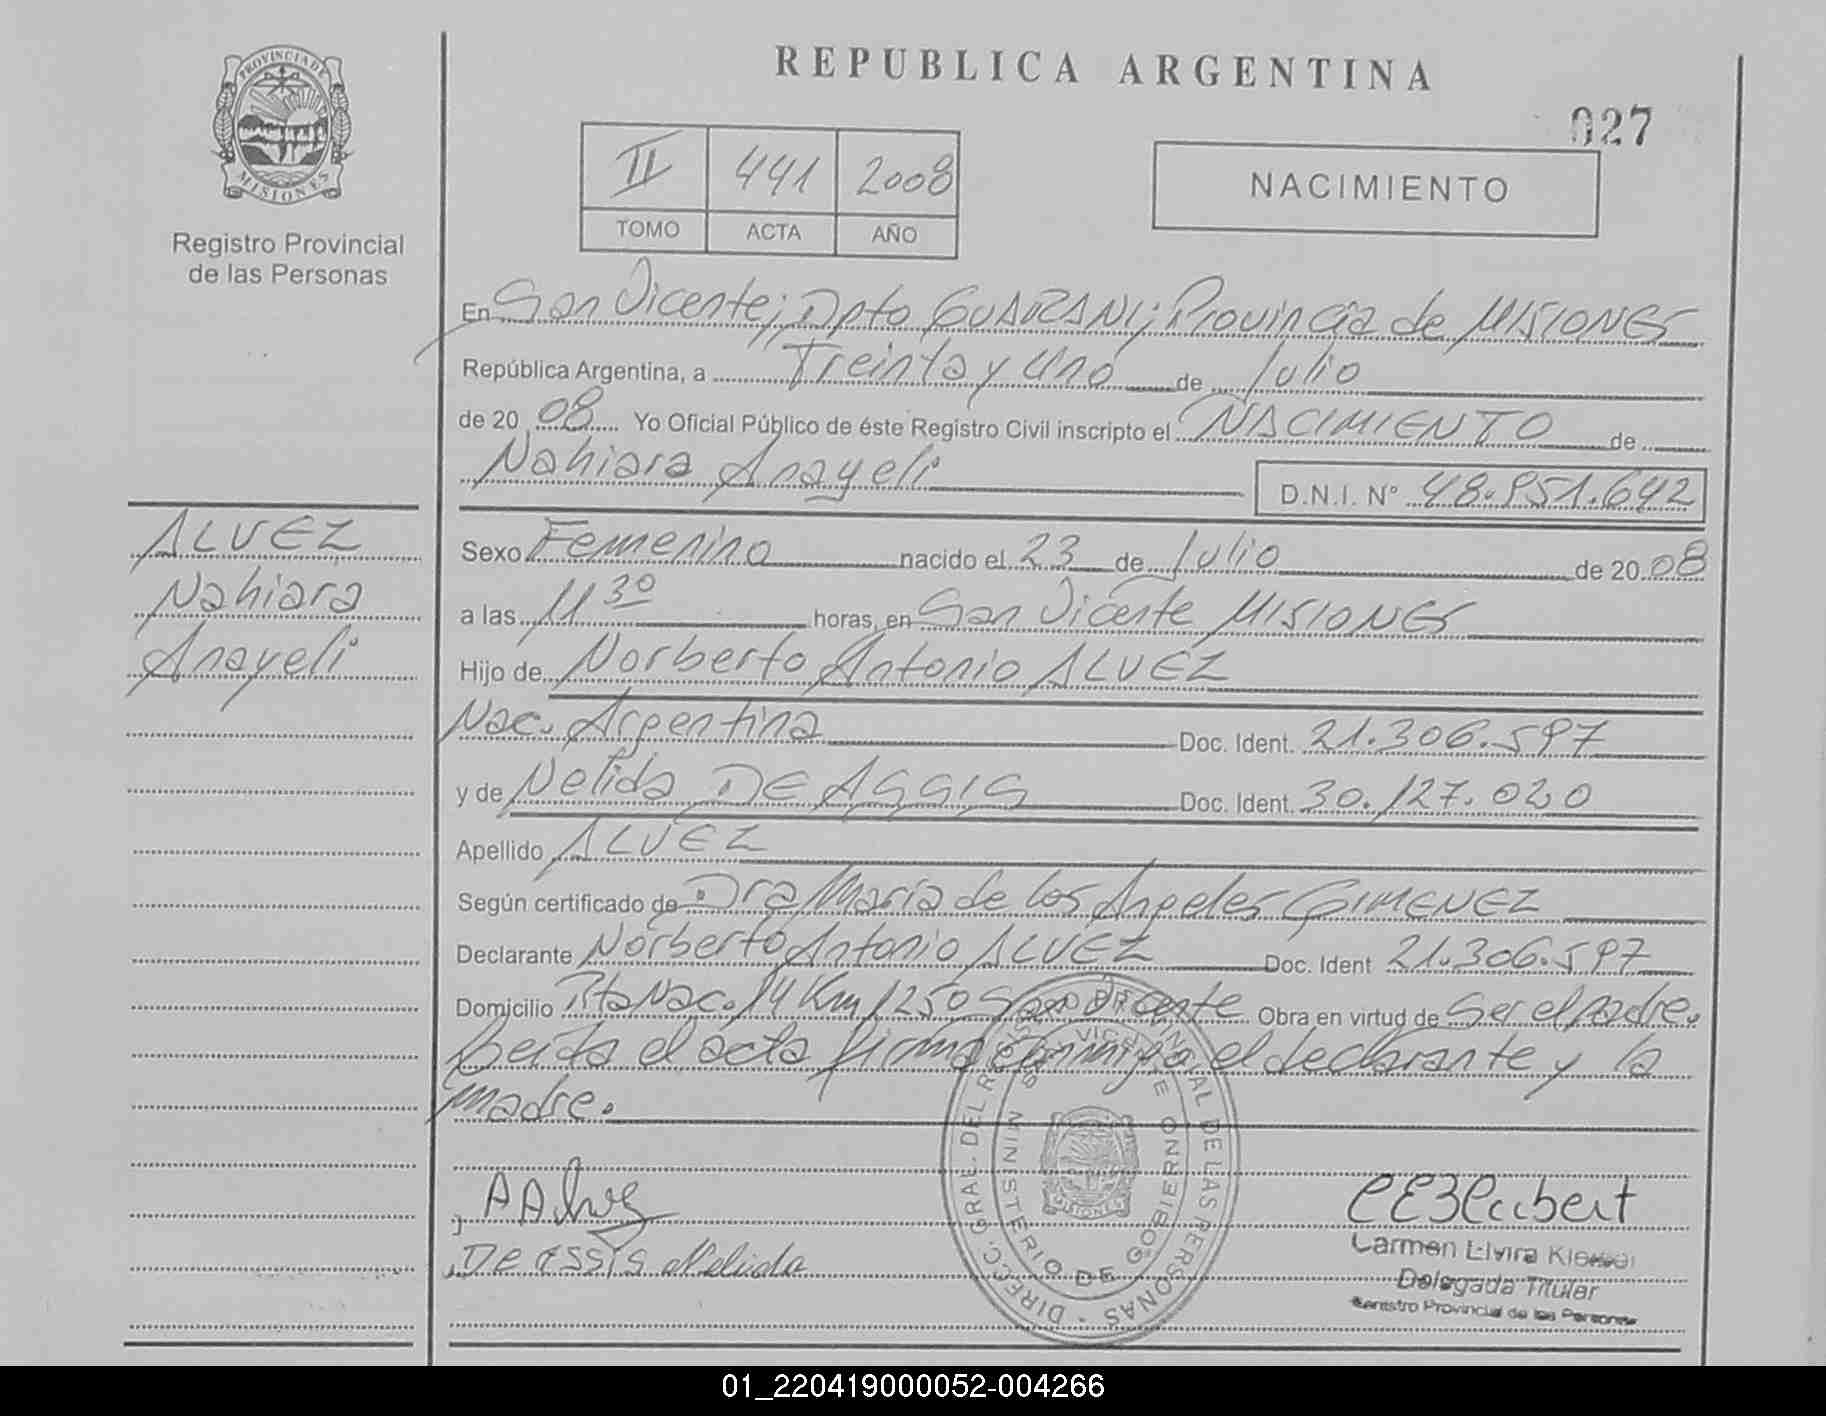 PROVINCIA DE
MISIONES
Registro Provincial
de las Personas
REPUBLICA ARGENTINA
027
II 441 2008
TOMO ACTA AÑO
NACIMIENTO
En San Vicente; Dpto GUARANI; Provincia de MISIONES
República Argentina, a Treinta y uno de Julio
de 2008 Yo Oficial Público de éste Registro Civil inscripto el NACIMIENTO de
Nahiara Anayeli D.N.I. Nº 48.951.642
ALVEZ
Nahiara
Anayeli
Sexo Femenino nacido el 23 de Julio de 2008
a las 11 30 horas, en San Vicente MISIONES
Hijo de Norberto Antonio ALVEZ
Nac. Argentina Doc. Ident. 21.306.597
y de Nelida DE ASSIS Doc. Ident. 30.127.020
Apellido ALVEZ
Según certificado de Dra Maria de los Angeles GIMENEZ
Declarante Norberto Antonio ALVEZ Doc. Ident 21.306.597
Domicilio Rta Nac. 14 Km 1250 San Vicente Obra en virtud de Ser el padre.
Leida el acta firma conmigo el declarante y la
madre.
DIRECC. GRAL. DEL DE LAS PERSONAS
MINISTERIO DE GOBIERNO
MISIONES
De Assis Nelida
Carmen Elvira
Delegada Titular
Registro Provincial de las Personas
01_220419000052-004266